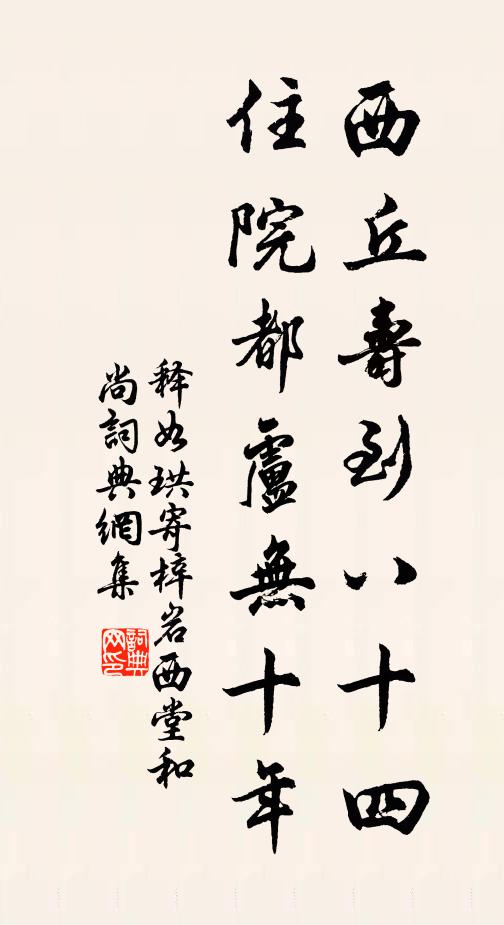 西丘壽到八十四
住院都盧無十年
释如珙寄梓岩西堂和
尚詞典網集
詞典
网印